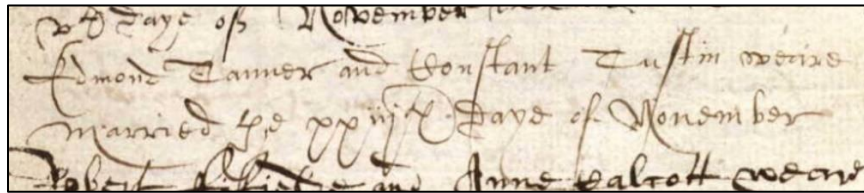 daye of November
Edmond Tanner and Constant Tustin weare
married the xxiijth daye of November
Robert and Anne weare